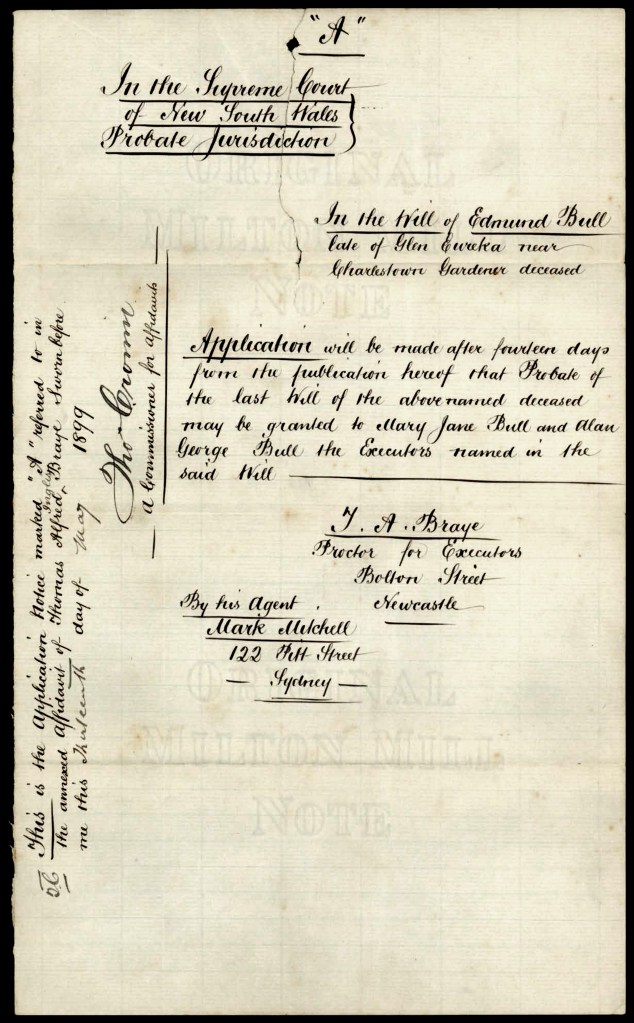 "A"
In the Supreme Court
of New South Wales
Probate Jurisdiction
In the Will of Edmund Bull
late of Glen Eureka near
Charlestown Gardener deceased
Application will be made after fourteen days
from the publication hereof that Probate of
the last Will of the abovenamed deceased
may be granted to Mary Jane Bull and Alan
George Bull the Executors named in the
said Will
T. A. Braye
Proctor for Executors
Bolton Street
Newcastle
By his Agent
Mark Mitchell
122 Pitt Street
Sydney
This is the Application Notice marked "A" referred to in
the annexed Affidavit of Thomas Alfred Braye Sworn before
me this Thirteenth day of May 1899
Tho Cromm
A Commissioner for Affidavits
ORIGINAL
MILTON MILL
NOTE
ORIGINAL
MILTON MILL
NOTE